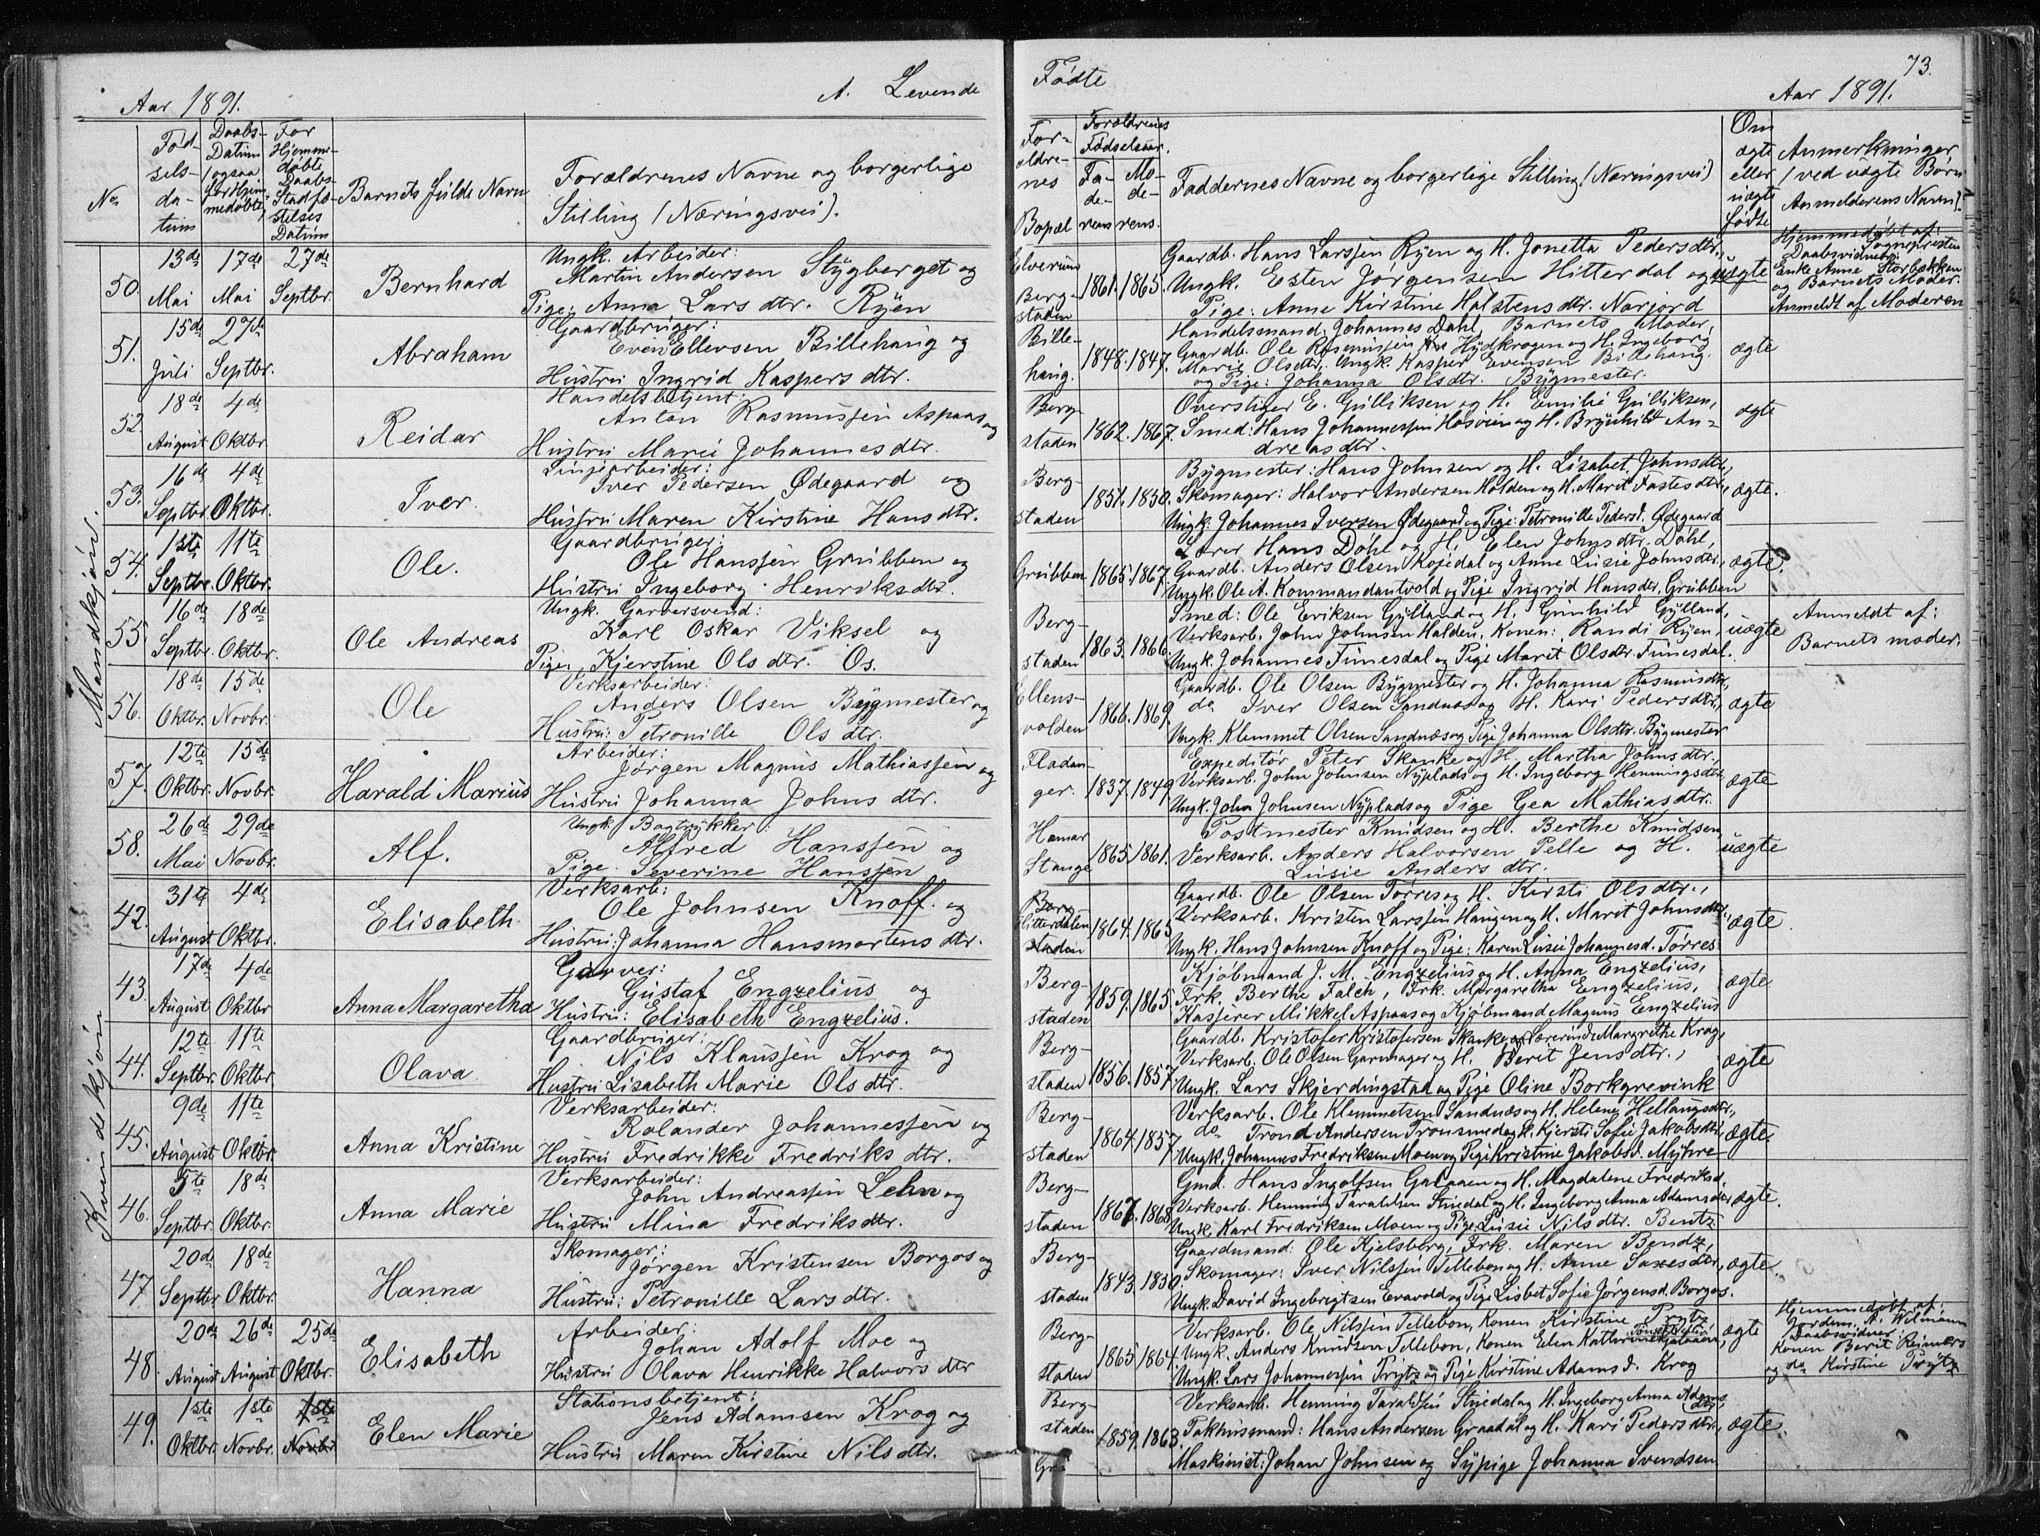 Aar 1891.
A. Levende
Fødte
73.
Aar 1891.
No
Fød-
sels-
da-
tum
Daabs-
Datum
(ogsaa
for Hjem-
medøbte)
For
Hjemme-
døbte
Daabs-
Stadfæ-
stelses
Datum
Barnets fulde Navn
Forældrenes Navne og borgerlige
Stilling (Næringsvei).
For-
ældre-
nes
Bopæl
Forældrenes
Fødselsaar.
Fa-
de-
rens
Mo-
de-
rens.
Faddernes Navne og borgerlige Stilling (Næringsvei)
Om
ægte
eller
uægte
fødte
Anmerkninger
(ved uægte Børn
Anmelderens Navn).
Mandkjøn.
50.
13de Mai
17de Mai
27de Septbr.
Bernhard
Ungk. Arbeider:
Martin Andersen Stygberget og
Pige: Anna Larsdtr. Ryen
Elverum
Berg-
staden
1861. 1865.
Gaardb. Hans Larssen Ryen og H. Jonetta Pedersdtr.
Ungk. Esten Jørgensen Hitterdal og
Pige: Anne Kirstine Halstensdtr. Narjord
uægte
Hjemmedøbt af:
Sognepresten
Daabsvidner:
Enke Anne Storbækken
og Barnets Moder.
Anmeldt af Moderen
51.
15de Juli
27de Septbr.
Abraham
Gaardbruger:
Even Ellevsen Billehaug og
Hustru Ingrid Kaspersdtr.
Bille-
haug.
1848. 1847.
Handelsmand: Johannes Dahl, Barnets Moder,
Gaardb. Ole Rasmussen Hydkrogen og H. Ingeborg
Marie Olsdtr., Ungk. Kasper Evensen Billehaug.
og Pige: Johanna Olsdtr. Bygmester.
ægte
52.
18de August
4de Oktbr.
Reidar
Handelsbetjent:
Anton Rasmussen Aspaas og
Hustru Marie Johannesdtr.
Berg-
staden
1862. 1867.
Overstiger E. Gulliksen og H. Emilie Gulliksen,
Smed: Hans Johannessen Høsøien og H. Brynhild An-
dreasdtr.
ægte
53.
16de Septbr.
4de Oktbr.
Iver.
Linjearbeider:
Iver Pedersen Ødegaard og
Hustru Maren Kirstine Hansdtr.
Berg-
staden
1851. 1850.
Bygmester: Hans Johnsen og H. Lisabet Johnsdtr,
Skomager: Halvor Andersen Holden og H. Marit Fastesdtr,
Ungk. Johannes Iversen Ødegaard og Pige: Petronille Pedersd. Ødegaard
ægte.
54.
1ste Septbr.
11te Oktbr.
Ole.
Gaardbruger:
Ole Hanssen Grubben og
Hustru Ingeborg Henriksdtr.
Grubben
1865. 1867.
Lærer Hans Døhl og H. Elen Johnsdtr. Døhl,
Gaardb. Anders Olsen Kojedal og Anne Lusie Johnsdtr.
Ungk. Ole A. Kommandantvold og Pige Ingrid Hansdtr. Grubben
ægte.
55.
16de Septbr.
18de Oktbr.
Ole Andreas
Ungk. Garversvend:
Karl Oskar Viksel og
Pige, Kjerstine Olsdtr. Os.
Berg-
staden
1863. 1866.
Smed: Ole Eriksen Gylland og H. Gunhild Gylland,
Verksarb. John Johnsen Halden, Konen: Randi Ryen,
Ungk. Johannes Funesdal og Pige Marit Olsdtr. Funesdal.
uægte
Anmeldt af:
Barnets moder.
56.
18de Oktbr.
15de Novbr.
Ole
Verksarbeider:
Anders Olsen Bygmester og
Hustru: Petronille Olsdtr.
Ellens-
volden
1866. 1869.
Gaardb. Ole Olsen Bygmester og H. Johanna Rasmusdtr,
do Iver Olsen Sandnæs og H. Kari Pedersdtr.,
Ungk. Klemmet Olsen Sandnæs og Pige Johanna Olsdtr. Bygmester
ægte
57.
12te Oktbr.
15de Novbr.
Harald Marius
Arbeider:
Jørgen Magnus Mathiassen og
Hustru Johanna Johnsdtr.
Fladan-
ger.
1837. 1849
Expeditør Peter Skanke og H. Martha Johnsdtr.,
Verksarb. John Johnsen Nyplads og H. Ingeborg Henningsdtr
Ungk. John Johnsen Nyplads og Pige Gea Mathiasdtr.
ægte
58.
26de Mai
29de Novbr.
Alf.
Ungk. Bogtrykker:
Alfred Hanssen og
Pige Severine Hanssen
Hamar
Stange
1865. 1861.
Postmester Knudsen og H. Berthe Knudsen
Verksarb. Anders Halvorsen Pelle og H.
Lusie Andersdtr.
uægte
Kvindekjøn
42.
31te August
4de Oktbr.
Elisabeth
Verksarb:
Ole Johnsen Knoff. og
Hustru: Johanna Hansmortensdtr.
Berg-
Hitterdalen
staden
1864. 1865
Gaardb. Ole Olsen Torres og H. Kirsti Olsdtr.,
Verksarb. Kristen Larssen Haugen og H. Marit Johnsdtr,
Ungk. Hans Johnsen Knoff og Pige: Karen Lusie Johannesd. Torres
ægte.
43.
17de August
4de Oktbr
Anna Margaretha
Garver:
Gustaf Engzelius og
Hustru: Elisabeth Engzelius.
Berg-
staden
1859. 1865
Kjøbmand J. M. Engzelius og H. Anna Engzelius,
Frk. Berthe Falch, Frk. Margaretha Engzelius,
Kasserer Mikkel Aspaas og Kjøbmand Magnus Engzelius
ægte
44.
12te Septbr.
11te Oktbr.
Olava
Gaardbruger:
Nils Klaussen Krog og
Hustru Lisabeth Marie Olsdtr.
Berg-
staden
1856. 1857
Gaardb. Kristofer Kristofersen Skanke og Lærerinde Margrethe Krog,
Verksarb. Ole Olsen Garmager og H. Berit Jensdtr.,
Ungk. Lars Skjerdingstad og Pige Oline Borkgrevink
ægte
45.
9de August
11te Oktbr.
Anna Kristine
Verksarbeider:
Rolander Johannessen og
Hustru Fredrikke Fredriksdtr.
Berg-
staden
1864. 1857
Verksarb. Ole Klemmetsen Sandnæs og H. Helene Hellangsdtr.,
do Trond Andersen Tronsmed og H. Kjersti Sofie Jakobsdtr
Ungk. Johannes Fredriksen Moen og Pige Kristine Jakobsd. Myhre
ægte.
46.
5te Septbr.
18de Oktbr.
Anna Marie
Verksarbeider:
John Andreassen Lehn og
Hustru Mina Fredriksdtr.
Berg-
staden
1867. 1868
Gmd. Hans Ingolfsen Galaaen og H. Magdalene Fredriksd.
Verksarb. Henning Taraldsen Stuedal og H. Ingeborg Anna Adamsdtr
Ungk. Karl Fredriksen Moen og Pige Lusie Nilsdtr. Bentz
ægte.
47.
20de Septbr.
18de Oktbr.
Hanna
Skomager:
Jørgen Kristensen Borgos og
Hustru: Petronille Larsdtr.
Berg-
staden
1843. 1850.
Gaardmand: Ole Kjelsberg, Frk. Maren Bendz,
Skomager: Iver Nilssen Tellebon og H. Anne Saxesdtr,
Ungk. David Ingebrigtsen Evavold og Pige Lisbet Sofie Jørgensd. Borgos.
ægte.
48.
20de August
26de August
25de Oktbr.
Elisabeth
Arbeider:
Johan Adolf Moe og
Hustru Olava Henrikke Halvorsdtr
Berg-
staden
1865. 1864.
Verksarb. Ole Nilssen Tellebon, Konen Kirstine Prytz
Ungk. Anders Knudsen Tellebon, Konen Elen Kathrine
Ungk. Lars Johannessen Prytz og Pige Kirstine Adamsd. Krog
ægte
Hjemmedøbt af:
Jordem. A. Wilmann
Daabsvidner:
Konen Berit Reinaas
og do Kirstine Prytz
49.
1ste Oktbr.
1ste Novbr.
1ste Novbr
Elen Marie
Stationsbetjent:
Jens Adamsen Krog og
Hustru Maren Kirstine Nilsdtr.
Berg-
staden
1859. 1863
Verksarb. Henning Taraldsen Stuedal og H. Ingeborg Anna Adams
dtr,
Pakhusmand: Hans Andersen Graadal og H. Kari Pedersdtr,
Maskinist: Johan Johnsen og Sypige Johanna Svendsen
ægte.